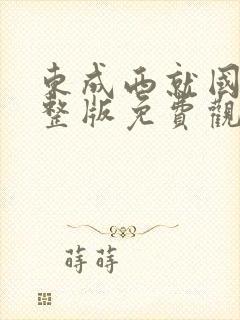 東成西就國
整版免費觀
蒔蒔